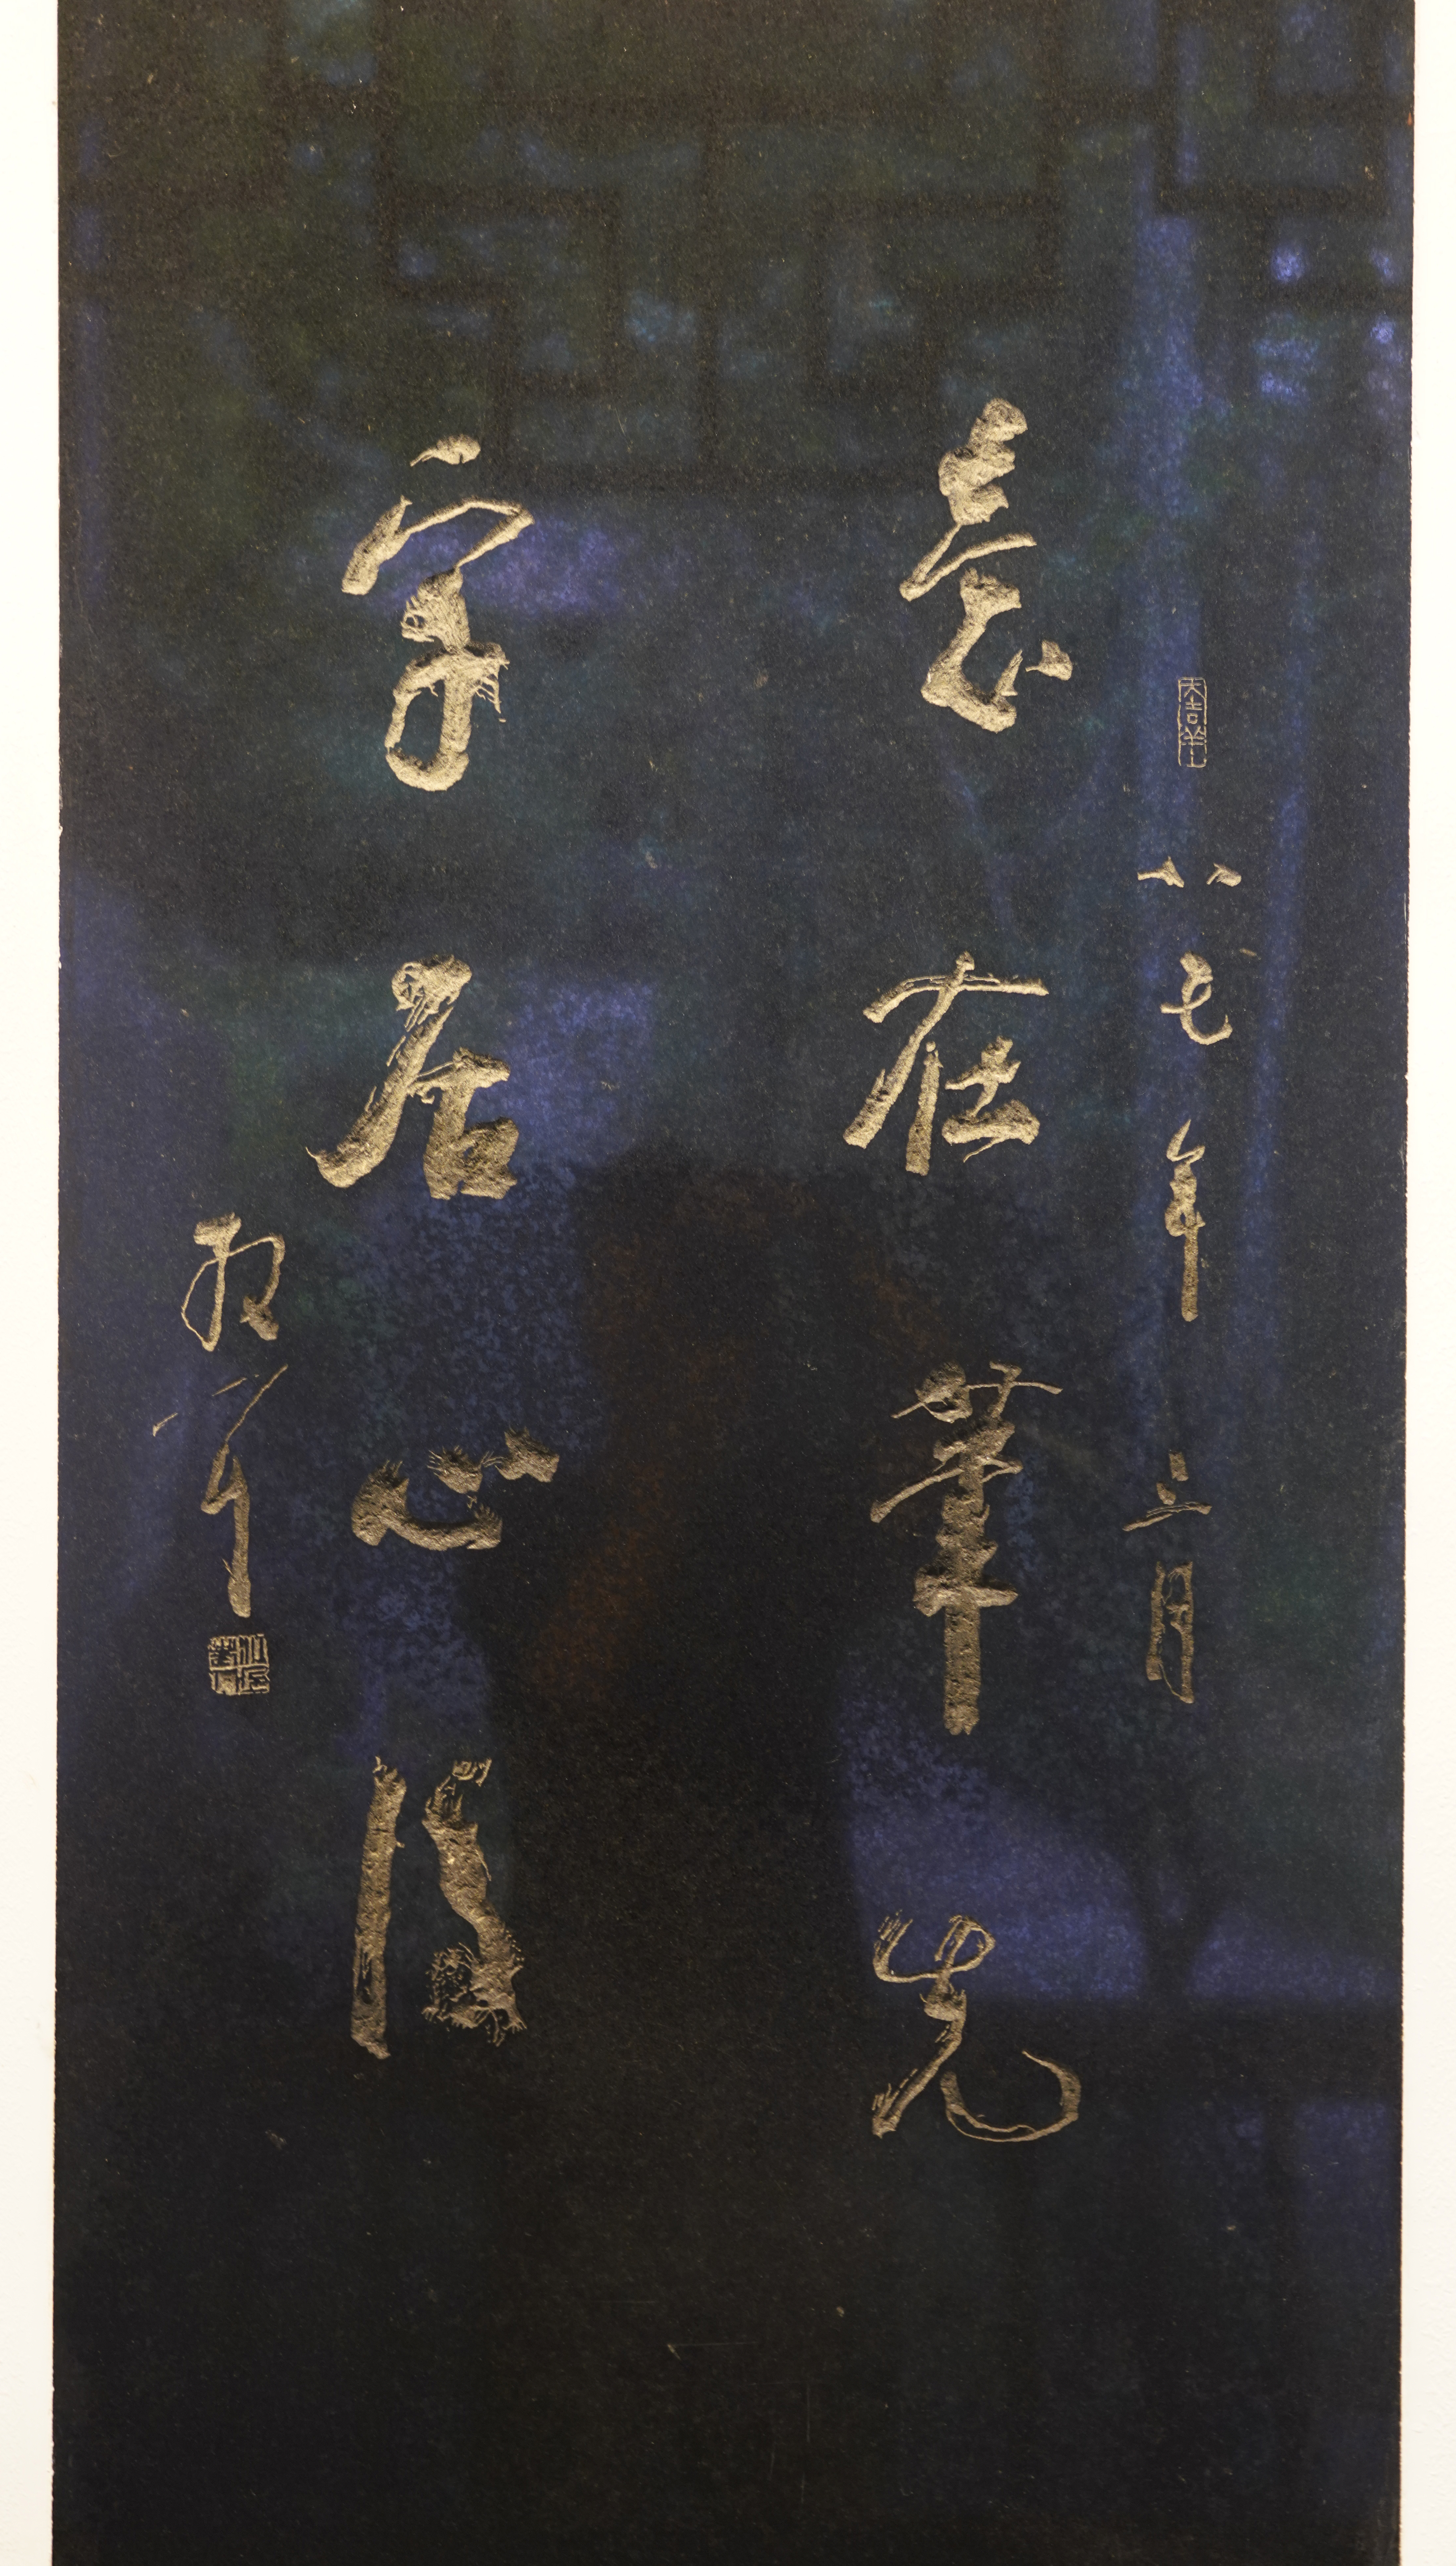 八七年三月
意在筆先
字居心後